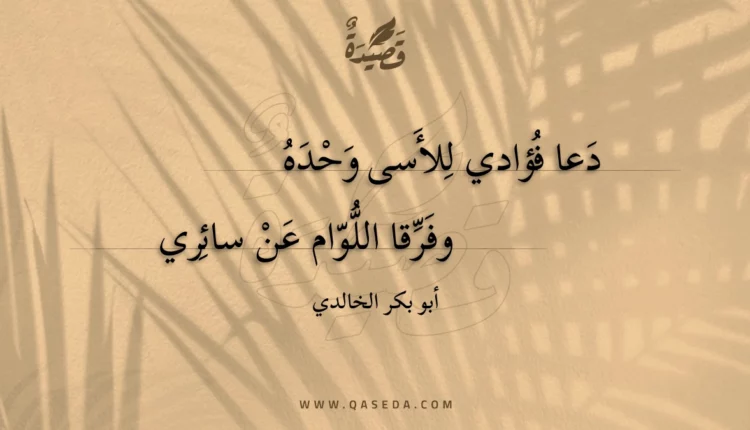 قَصِيدَةٌ
دَعا فُؤادي لِلأَسى وَحْدَهُ
وفَرِّقا اللُّوّام عَنْ سائِري
أبو بكر الخالدي
WWW.QASEDA.COM